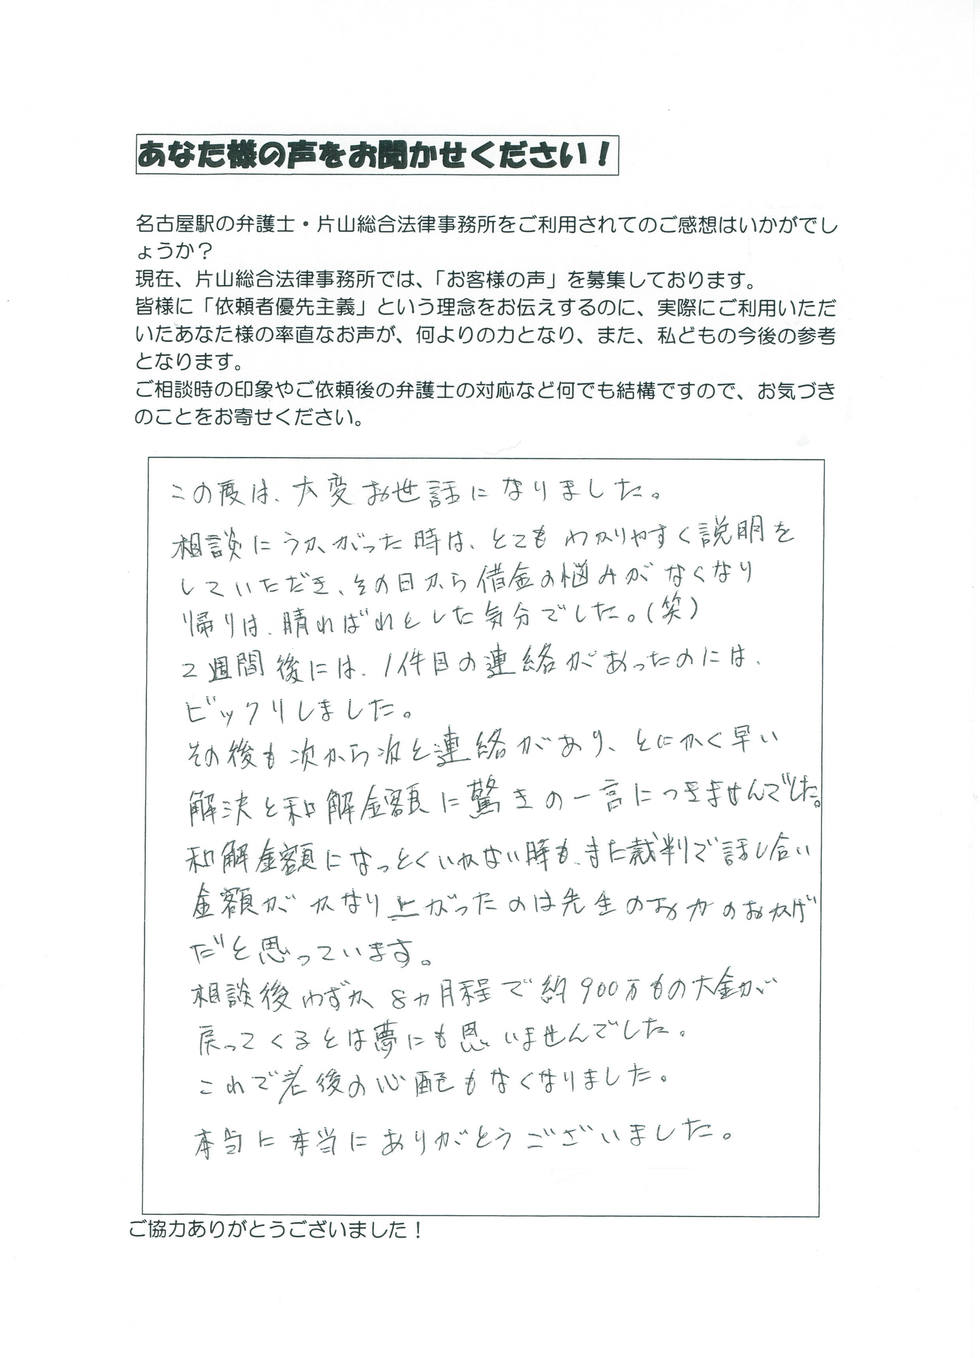 あなた様の声をお聞かせください！
名古屋駅の弁護士・片山総合法律事務所をご利用されてのご感想はいかがでし
ょうか？
現在、片山総合法律事務所では、「お客様の声」を募集しております。
皆様に「依頼者優先主義」という理念をお伝えするのに、実際にご利用いただ
いたあなた様の率直なお声が、何よりの力となり、また、私どもの今後の参考
となります。
ご相談時の印象やご依頼後の弁護士の対応など何でも結構ですので、お気づき
のことをお寄せください。
この度は、大変お世話になりました。
相談にうかがった時は、とてもわかりやすく説明を
していただき、その日から借金の悩みがなくなり
帰りは、晴ればれとした気分でした。(笑)
2週間後には、1件目の連絡があったのには、
ビックリしました。
その後も次から次と連絡があり、とにかく早い
解決と和解金額に驚きの一言につきませんでした。
和解金額になっとくいかない時も、また裁判で話し合い
金額がかなり上がったのは先生のお力のおかげ
だと思っています。
相談後わずか8ヵ月程で約900万もの大金が
戻ってくるとは夢にも思いませんでした。
これで老後の心配もなくなりました。
本当に本当にありがとうございました。
ご協力ありがとうございました！